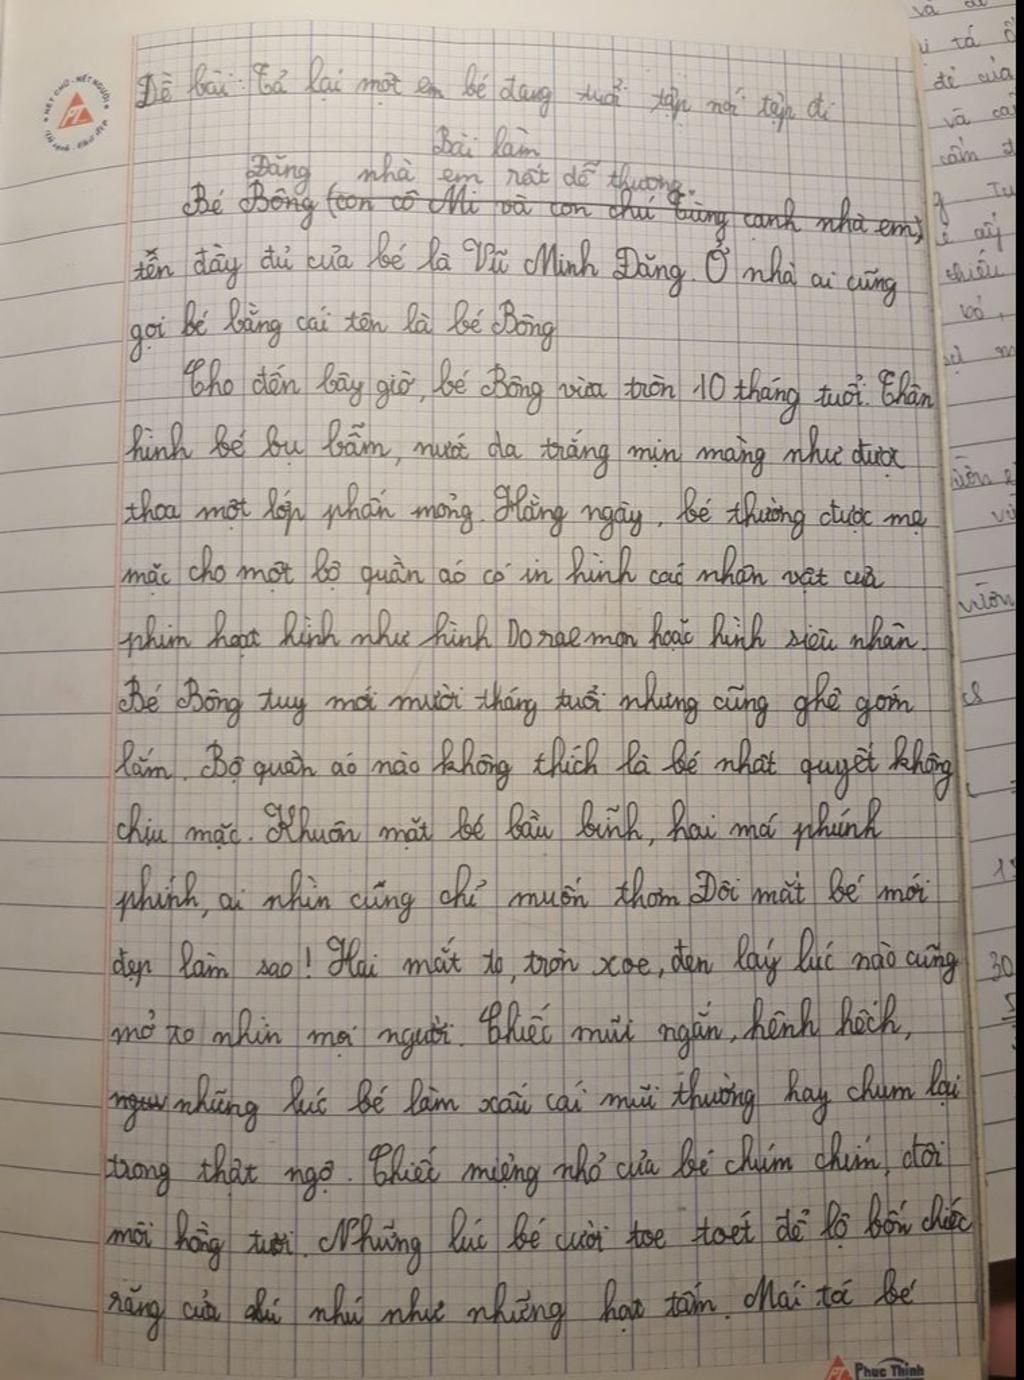 Đề bài: Tả lại một em bé đang tuổi tập nói tập đi
Bài làm
Đăng nhà em rất dễ thương.
Bé Bông (con cô Mi và con chú Tùng cạnh nhà em)
tên đầy đủ của bé là Vũ Minh Đăng. Ở nhà ai cũng
gọi bé bằng cái tên là bé Bông
Cho đến bây giờ, bé Bông vừa tròn 10 tháng tuổi. Thân
hình bé bụ bẫm, nước da trắng mịn màng như được
thoa một lớp phấn mỏng. Hằng ngày, bé thường được mẹ
mặc cho một bộ quần áo có in hình các nhân vật của
phim hoạt hình như hình Doraemon hoặc hình siêu nhân.
Bé Bông tuy mới mười tháng tuổi nhưng cũng ghê gớm
lắm. Bộ quần áo nào không thích là bé nhất quyết không
chịu mặc. Khuôn mặt bé bầu bĩnh, hai má phúnh
phính, ai nhìn cũng chỉ muốn thơm Đôi mắt bé mới
đẹp làm sao! Hai mắt to, tròn xoe, đen láy lúc nào cũng
mở to nhìn mọi người. Chiếc mũi ngắn, hênh hếch,
những lúc bé làm xấu cái mũi thường hay chum lại
trong thật ngộ. Chiếc miệng nhỏ của bé chúm chím, đôi
môi hồng tươi. Những lúc bé cười toe toét để lộ bốn chiếc
răng cửa nhú như những hạt tấm. Mái tóc bé
NÉT CHỮ - NẾT NGƯỜI
PT
Phuc Thinh